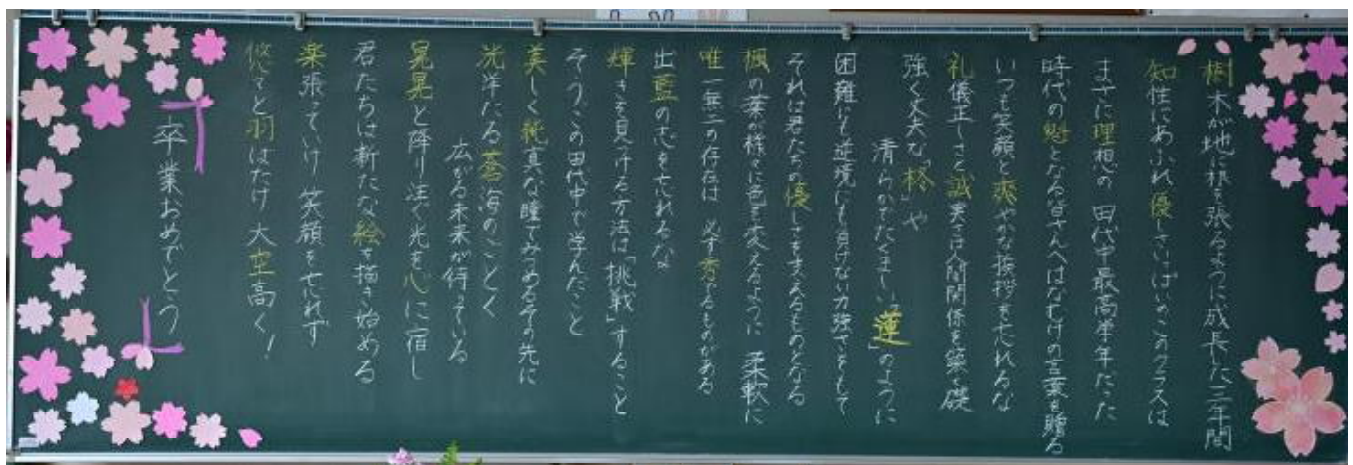 樹木が地に根を張るように成長した三年間
知性にあふれ優しさいっぱいのこのクラスは
まさに理想の 田代中最高学年だった
時代の魁となる皆さんへはなむけの言葉を贈る
いつも笑顔と爽やかな挨拶を忘れるな
礼儀正しさと誠実さは人間関係を築く礎
強く丈夫な「柊」や
清らかでたくましい「蓮」のように
困難にも逆境にも負けない力強さをもて
それは君たちの優しさを支えるものとなる
楓の葉が様々に色を変えるように 柔軟に
唯一無二の存在は 必ず秀でるものがある
出藍の志を忘れるな
輝きを見つける方法は「挑戦」すること
そう、この田代中で学んだこと
美しく純真な瞳でみつめるその先に
洸洋たる蒼海のごとく
広がる未来が待っている
晃晃と降り注ぐ光を心に宿し
君たちは新たな絵を描き始める
楽張っていけ 笑顔を忘れず
悠々と羽ばたけ 大空高く!
卒業おめでとう